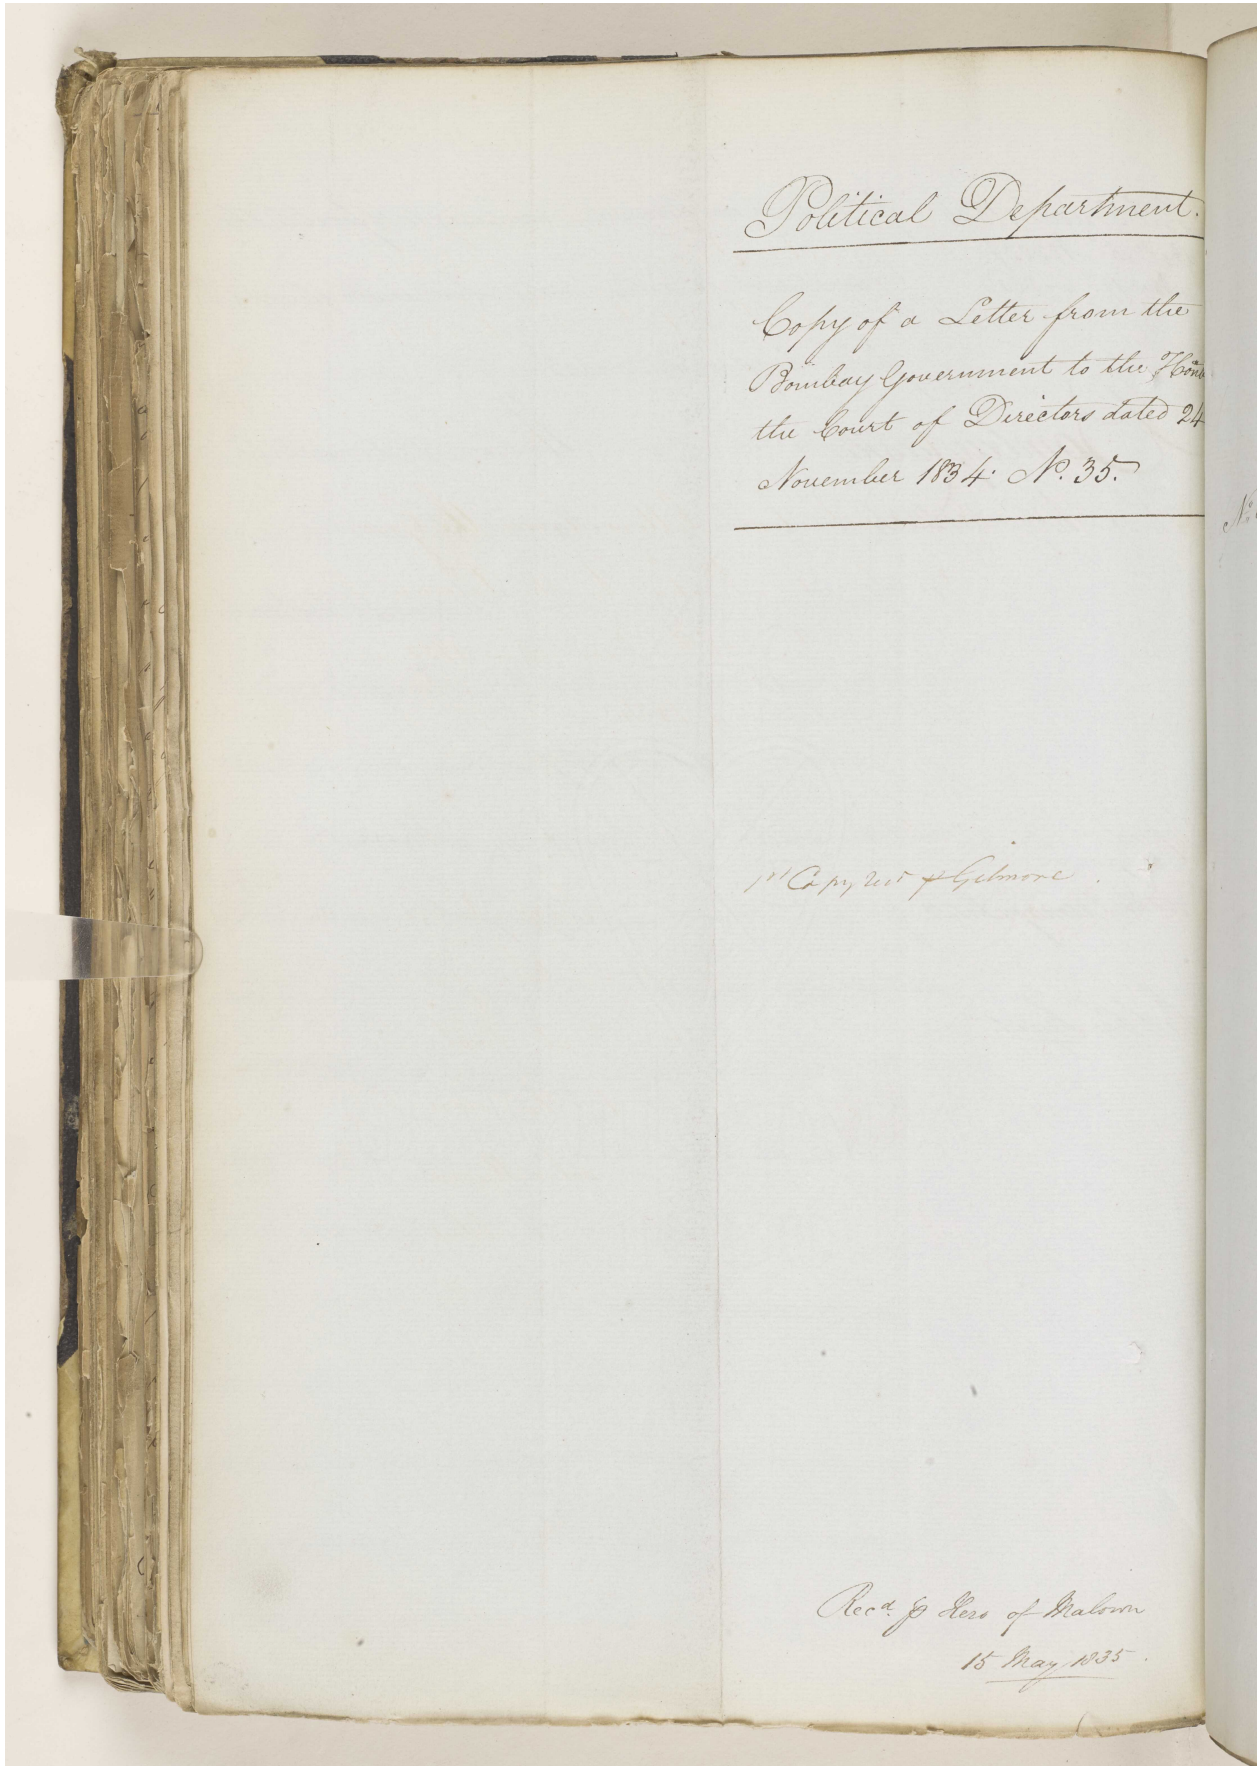 Political Department.
Copy of a Letter from the
Bombay Government to the Honb
the Court of Directors dated 24
November 1834. No. 35.
1st Copy rec'd p Gilmore
Recd. p Hero of Malown
15 May 1835
No